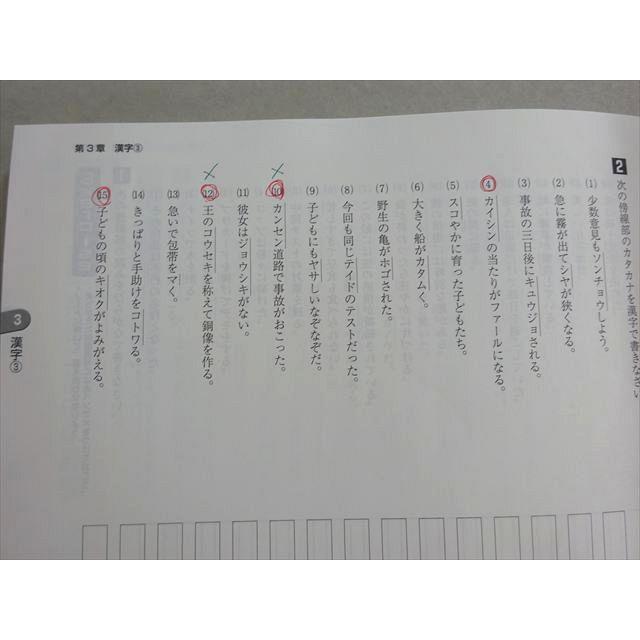 第3章 漢字③
2 次の傍線部のカタカナを漢字で書きなさい
(1) 少数意見もソンチョウしよう。
(2) 急に霧が出てシヤが狭くなる。
(3) 事故の三日後にキュウジョされる。
(4) カイシンの当たりがファールになる。
(5) スコやかに育った子どもたち。
(6) 大きく船がカタムく。
(7) 野生の亀がホゴされた。
(8) 今回も同じテイドのテストだった。
(9) 子どもにもヤサしいなぞなぞだ。
(10) カンセン道路で事故がおこった。
(11) 彼女はジョウシキがない。
(12) 王のコウセキを称えて銅像を作る。
(13) 急いで包帯をマく。
(14) きっぱりと手助けをコトワる。
(15) 子どもの頃のキオクがよみがえる。
3
漢字③